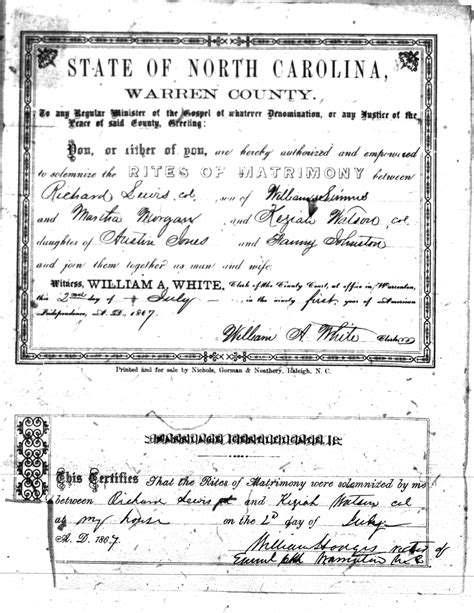 STATE OF NORTH CAROLINA,
WARREN COUNTY.
To any Regular Minister of the Gospel of whatever Denomination, or any Justice of the
Peace of said County, Greeting:
You, or either of you, are hereby authorized and empowered
to solemnize the RITES OF MATRIMONY between
Richard Lewis col, son of William
and Martha Morgan and Keziah Watson, col
daughter of Austin Jones and Fanny Johnston
and join them together as man and wife.
Witness, WILLIAM A. WHITE, Clerk of the County Court, at office in Warrenton,
this 2nd day of July in the ninety first, year of American
Independence, A. D. 1867
William A. White Clerk
Printed and for sale by Nichols, Gorman & Neathery, Raleigh, N. C.
This Certifies That the Rites of Matrimony were solemnized by me
between Richard Lewis and Keziah Watson col
at my house on the 2d day of July
A. D. 1867.
William Hodges rector of